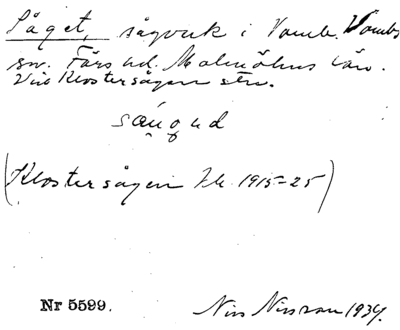 Såget, sågverk i Vomb. Vombs
sn. Färs hd. Malmöhus län.
Vid Klostersågen stn.
(Klostersågen Jk. 1915-25)
Nr 5599. Nils Nilsson 1934.